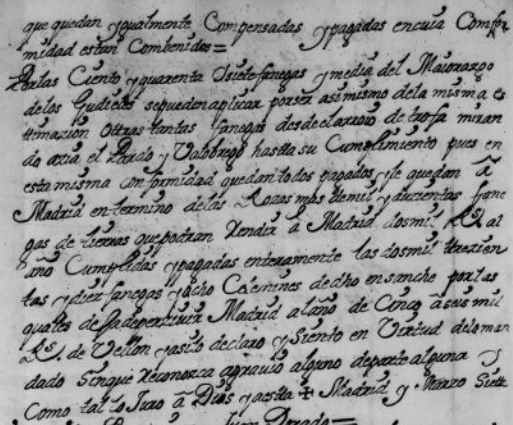 que quedan ygualmente Compensadas ypagadas encuia Confor
midad estan Combenidos=
Porlas Ciento yquarenta Osietefanegas ymedia del Maiorazgo
delos Gudieles sepuedenaplicar porser asimismo dela misma es
ttimazion Ottras tantas fanegas desdeelarroio de trofa miran
do azia el Pardo y Valobrego hastta su Cumplimiento pues en
estamisma conformidad quedantodos pagados yle quedan â
Madrid entermino delas Rozas mas demil yducientas fane
gas de tierras quepodran Rendir â Madrid dosmil Rs. al
año Cumplidas ypagadas enteramente las dosmil ttrezien
tas ydiez fanegas yocho Celemines dedho ensanche porlas
quales Madrid alaño de Cinco âseis mil
Rs. de Vellon yasilo declaro ySiento en Virtud delaman
dado Sinque Reconozca agrauio alguno departe alguna y
Como tal lo Juro â Dios yaestta + Madrid y Marzo Siett
Juan Dorado=